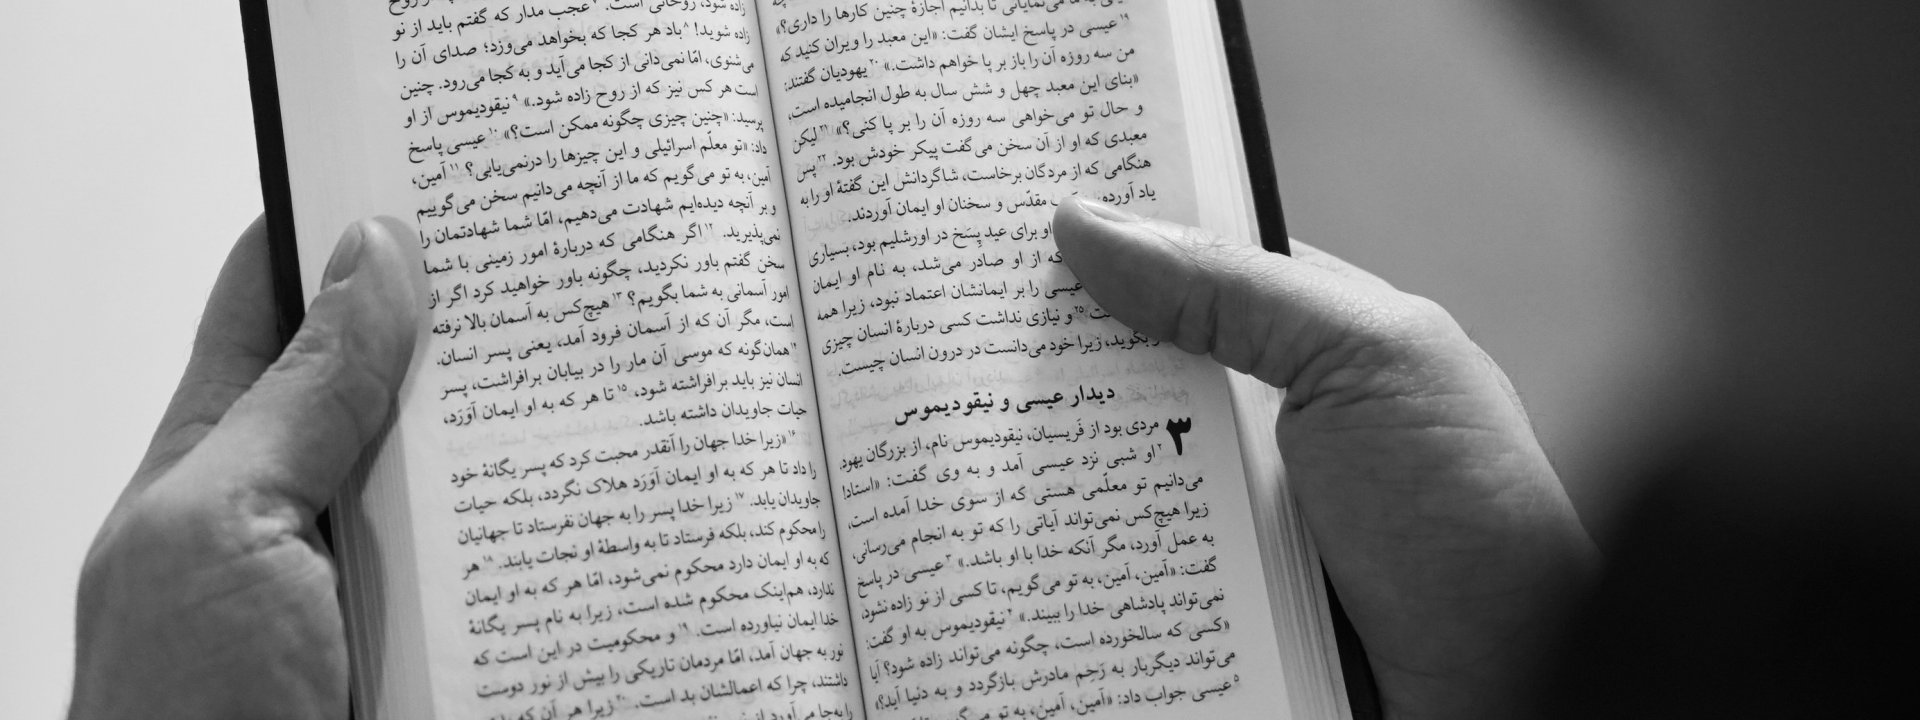 به ما می‌نمایانی تا بدانیم اجازهٔ چنین کارها را داری؟»
۱۹ عیسی در پاسخ ایشان گفت: «این معبد را ویران کنید که
من سه روزه آن را باز بر پا خواهم داشت.» ۲۰ یهودیان گفتند:
«بنای این معبد چهل و شش سال به طول انجامیده است،
و حال تو می‌خواهی سه روزه آن را بر پا کنی؟» ۲۱ لیکن
معبدی که او از آن سخن می‌گفت پیکر خودش بود. ۲۲ پس
هنگامی که از مردگان برخاست، شاگردانش این گفتهٔ او را به
یاد آورده، مقدّس و سخنان او ایمان آوردند.
او برای عید پِسَخ در اورشلیم بود، بسیاری
که از او صادر می‌شد، به نام او ایمان
عیسی را بر ایمانشان اعتماد نبود، زیرا همه
۲۵ و نیازی نداشت کسی دربارهٔ انسان چیزی
بگوید، زیرا خود می‌دانست در درون انسان چیست.
دیدار عیسی و نیقودیموس
۳ مردی بود از فَریسیان، نیقودیموس نام، از بزرگان یهود.
۲ او شبی نزد عیسی آمد و به وی گفت: «استاد!
می‌دانیم تو معلّمی هستی که از سوی خدا آمده است،
زیرا هیچ‌کس نمی‌تواند آیاتی را که تو به انجام می‌رسانی،
به عمل آورد، مگر آنکه خدا با او باشد.» ۳ عیسی در پاسخ
گفت: «آمین، آمین، به تو می‌گویم، تا کسی از نو زاده نشود،
نمی‌تواند پادشاهی خدا را ببیند.» ۴ نیقودیموس به او گفت:
«کسی که سالخورده است، چگونه می‌تواند زاده شود؟ آیا
می‌تواند دیگربار به رَحِم مادرش بازگردد و به دنیا آید؟»
۵ عیسی جواب داد: «آمین، آمین، به تو می‌گویم
زاده شود، روحانی است. ۷ عجب مدار که گفتم باید از نو
زاده شوید! ۸ باد هر کجا که بخواهد می‌وزد؛ صدای آن را
می‌شنوی، امّا نمی‌دانی از کجا می‌آید و به کجا می‌رود. چنین
است هر کس نیز که از روح زاده شود.» ۹ نیقودیموس از او
پرسید: «چنین چیزی چگونه ممکن است؟» ۱۰ عیسی پاسخ
داد: «تو معلّم اسرائیلی و این چیزها را درنمی‌یابی؟ ۱۱ آمین،
آمین، به تو می‌گویم که ما از آنچه می‌دانیم سخن می‌گوییم
و بر آنچه دیده‌ایم شهادت می‌دهیم، امّا شما شهادتمان را
نمی‌پذیرید. ۱۲ اگر هنگامی که دربارهٔ امور زمینی با شما
سخن گفتم باور نکردید، چگونه باور خواهید کرد اگر از
امور آسمانی به شما بگویم؟ ۱۳ هیچ‌کس به آسمان بالا نرفته
است، مگر آن که از آسمان فرود آمد، یعنی پسر انسان.
۱۴ همان‌گونه که موسی آن مار را در بیابان برافراشت، پسر
انسان نیز باید برافراشته شود، ۱۵ تا هر که به او ایمان آوَرَد،
حیات جاویدان داشته باشد.
۱۶ «زیرا خدا جهان را آنقدر محبت کرد که پسر یگانهٔ خود
را داد تا هر که به او ایمان آوَرَد هلاک نگردد، بلکه حیات
جاویدان یابد. ۱۷ زیرا خدا پسر را به جهان نفرستاد تا جهانیان
را محکوم کند، بلکه فرستاد تا به واسطهٔ او نجات یابند. ۱۸ هر
که به او ایمان دارد محکوم نمی‌شود، امّا هر که به او ایمان
ندارد، هم‌اینک محکوم شده است، زیرا به نام پسر یگانهٔ
خدا ایمان نیاورده است. ۱۹ و محکومیت در این است که
نور به جهان آمد، امّا مردمان تاریکی را بیش از نور دوست
داشتند، چرا که اعمالشان بد است. ۲۰ زیرا هر آن که بدی
را به‌جا می‌آورد از